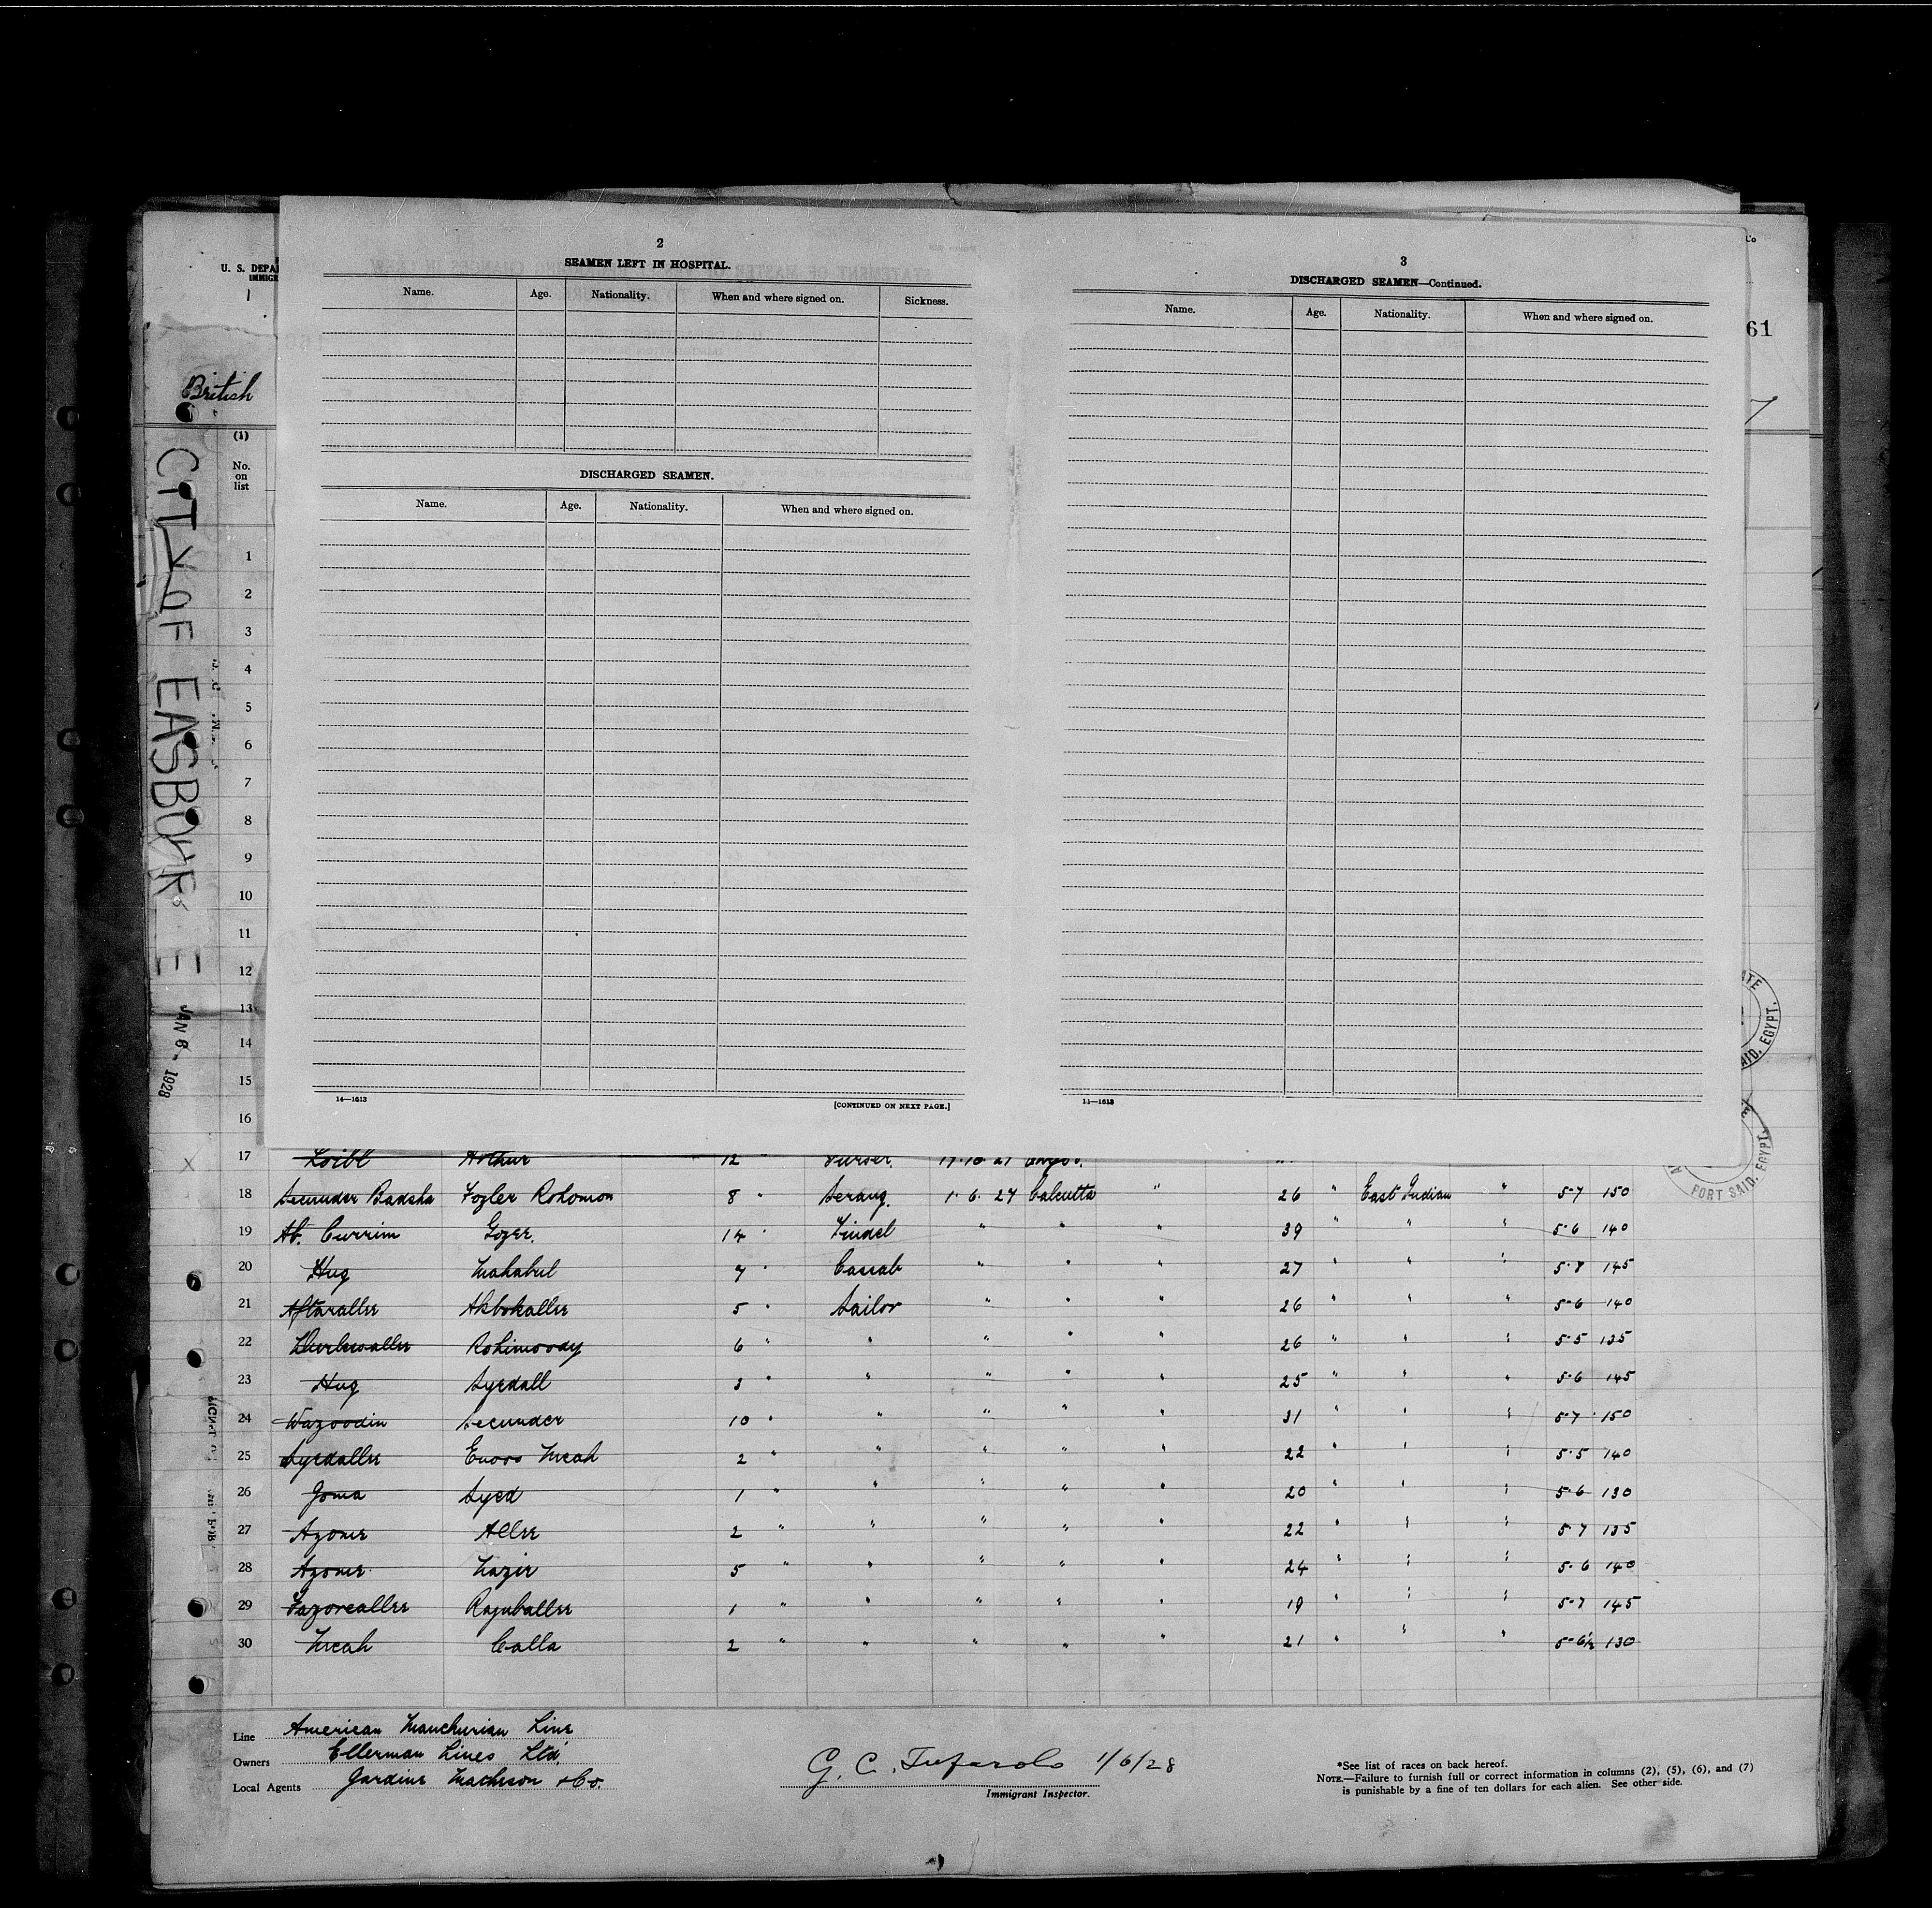 2
SEAMEN LEFT IN HOSPITAL.
Name. Age. Nationality. When and where signed on. Sickness.
DISCHARGED SEAMEN.
Name. Age. Nationality. When and where signed on.
14—1613 [CONTINUED ON NEXT PAGE.]
3
DISCHARGED SEAMEN—Continued.
Name. Age. Nationality. When and where signed on.
14—1613
U. S. DEPA
IMMIGR
61
British
(1)
No.
on
list
CITY OF EASBOURNE
JAN 6 - 1928
1
2
3
4
5
6
7
8
9
10
11
12
13
14
15
16
17 Loibl Arthur 12 " Purser.
18 Secunder Badsha Fozler Rohomon 8 " Serang. 1. 6. 27 Calcutta " 26 " East Indian " 5-7 150
19 Ab. Currim Gozer. 14 " Tindel " " " 39 " " " 5-6 140
20 Huq Mahabul 7 " Cassab " " " 27 " " " 5-8 145
21 Aftaraller Akbokaller 5 " Sailor " " " 26 " " " 5-6 140
22 Rohimoody 6 " " " " " 26 " " " 5-5 135
23 Huq Syedall 3 " " " " " 25 " " " 5-6 145
24 Wazoodin Secunder 10 " " " " " 31 " " " 5-7 150
25 Syedaller Enoos Meah 2 " " " " " 22 " " " 5-5 140
26 Goma Syed 1 " " " " " 20 " " " 5-6 130
27 Azomr Aller 2 " " " " " 22 " " " 5-7 135
28 Azomr Nazir 5 " " " " " 24 " " " 5-6 140
29 Fazorealler Rajuballer 1 " " " " " 19 " " " 5-7 145
30 Meah Calla 2 " " " " " 21 " " " 5-6½ 130
PORT SAID, EGYPT.
Line American Manchurian Line
Owners Ellerman Lines Ltd.
Local Agents Jardine Matheson & Co.
G. C. Tufarolo 1/6/28
Immigrant Inspector.
*See list of races on back hereof.
NOTE.—Failure to furnish full or correct information in columns (2), (5), (6), and (7)
is punishable by a fine of ten dollars for each alien. See other side.